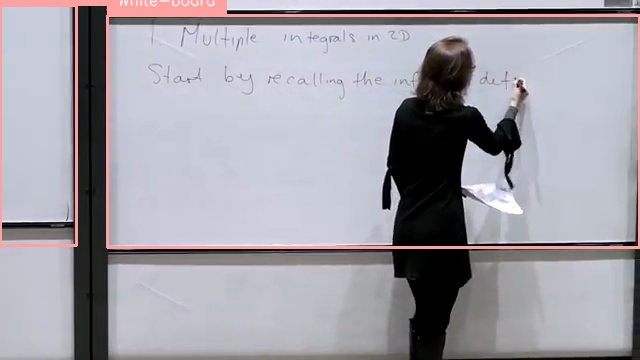 White-board
1. Multiple integrals in 2D
Start by recalling the inf defi